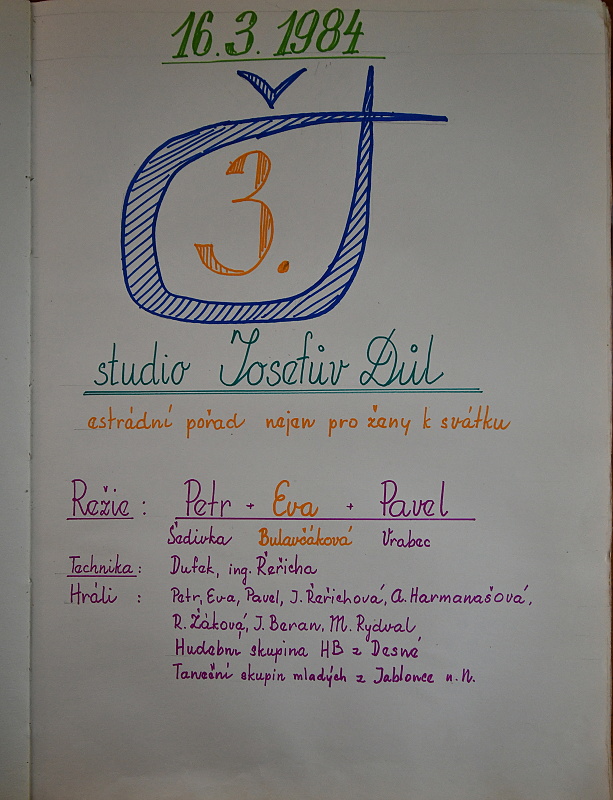 16.3.1984
3.
studio Josefův Důl
estrádní pořad nejen pro ženy k svátku
Režie : Petr + Eva + Pavel
Šedivka Bulavčáková Vrabec
Technika : Dufek, ing. Řeřicha
Hráli : Petr, Eva, Pavel, J. Řeřichová, A. Harmanašová,
R. Žáková, J. Beran, M. Rydval,
Hudební skupina HB z Desné
Taneční skupin mladých z Jablonce n.N.